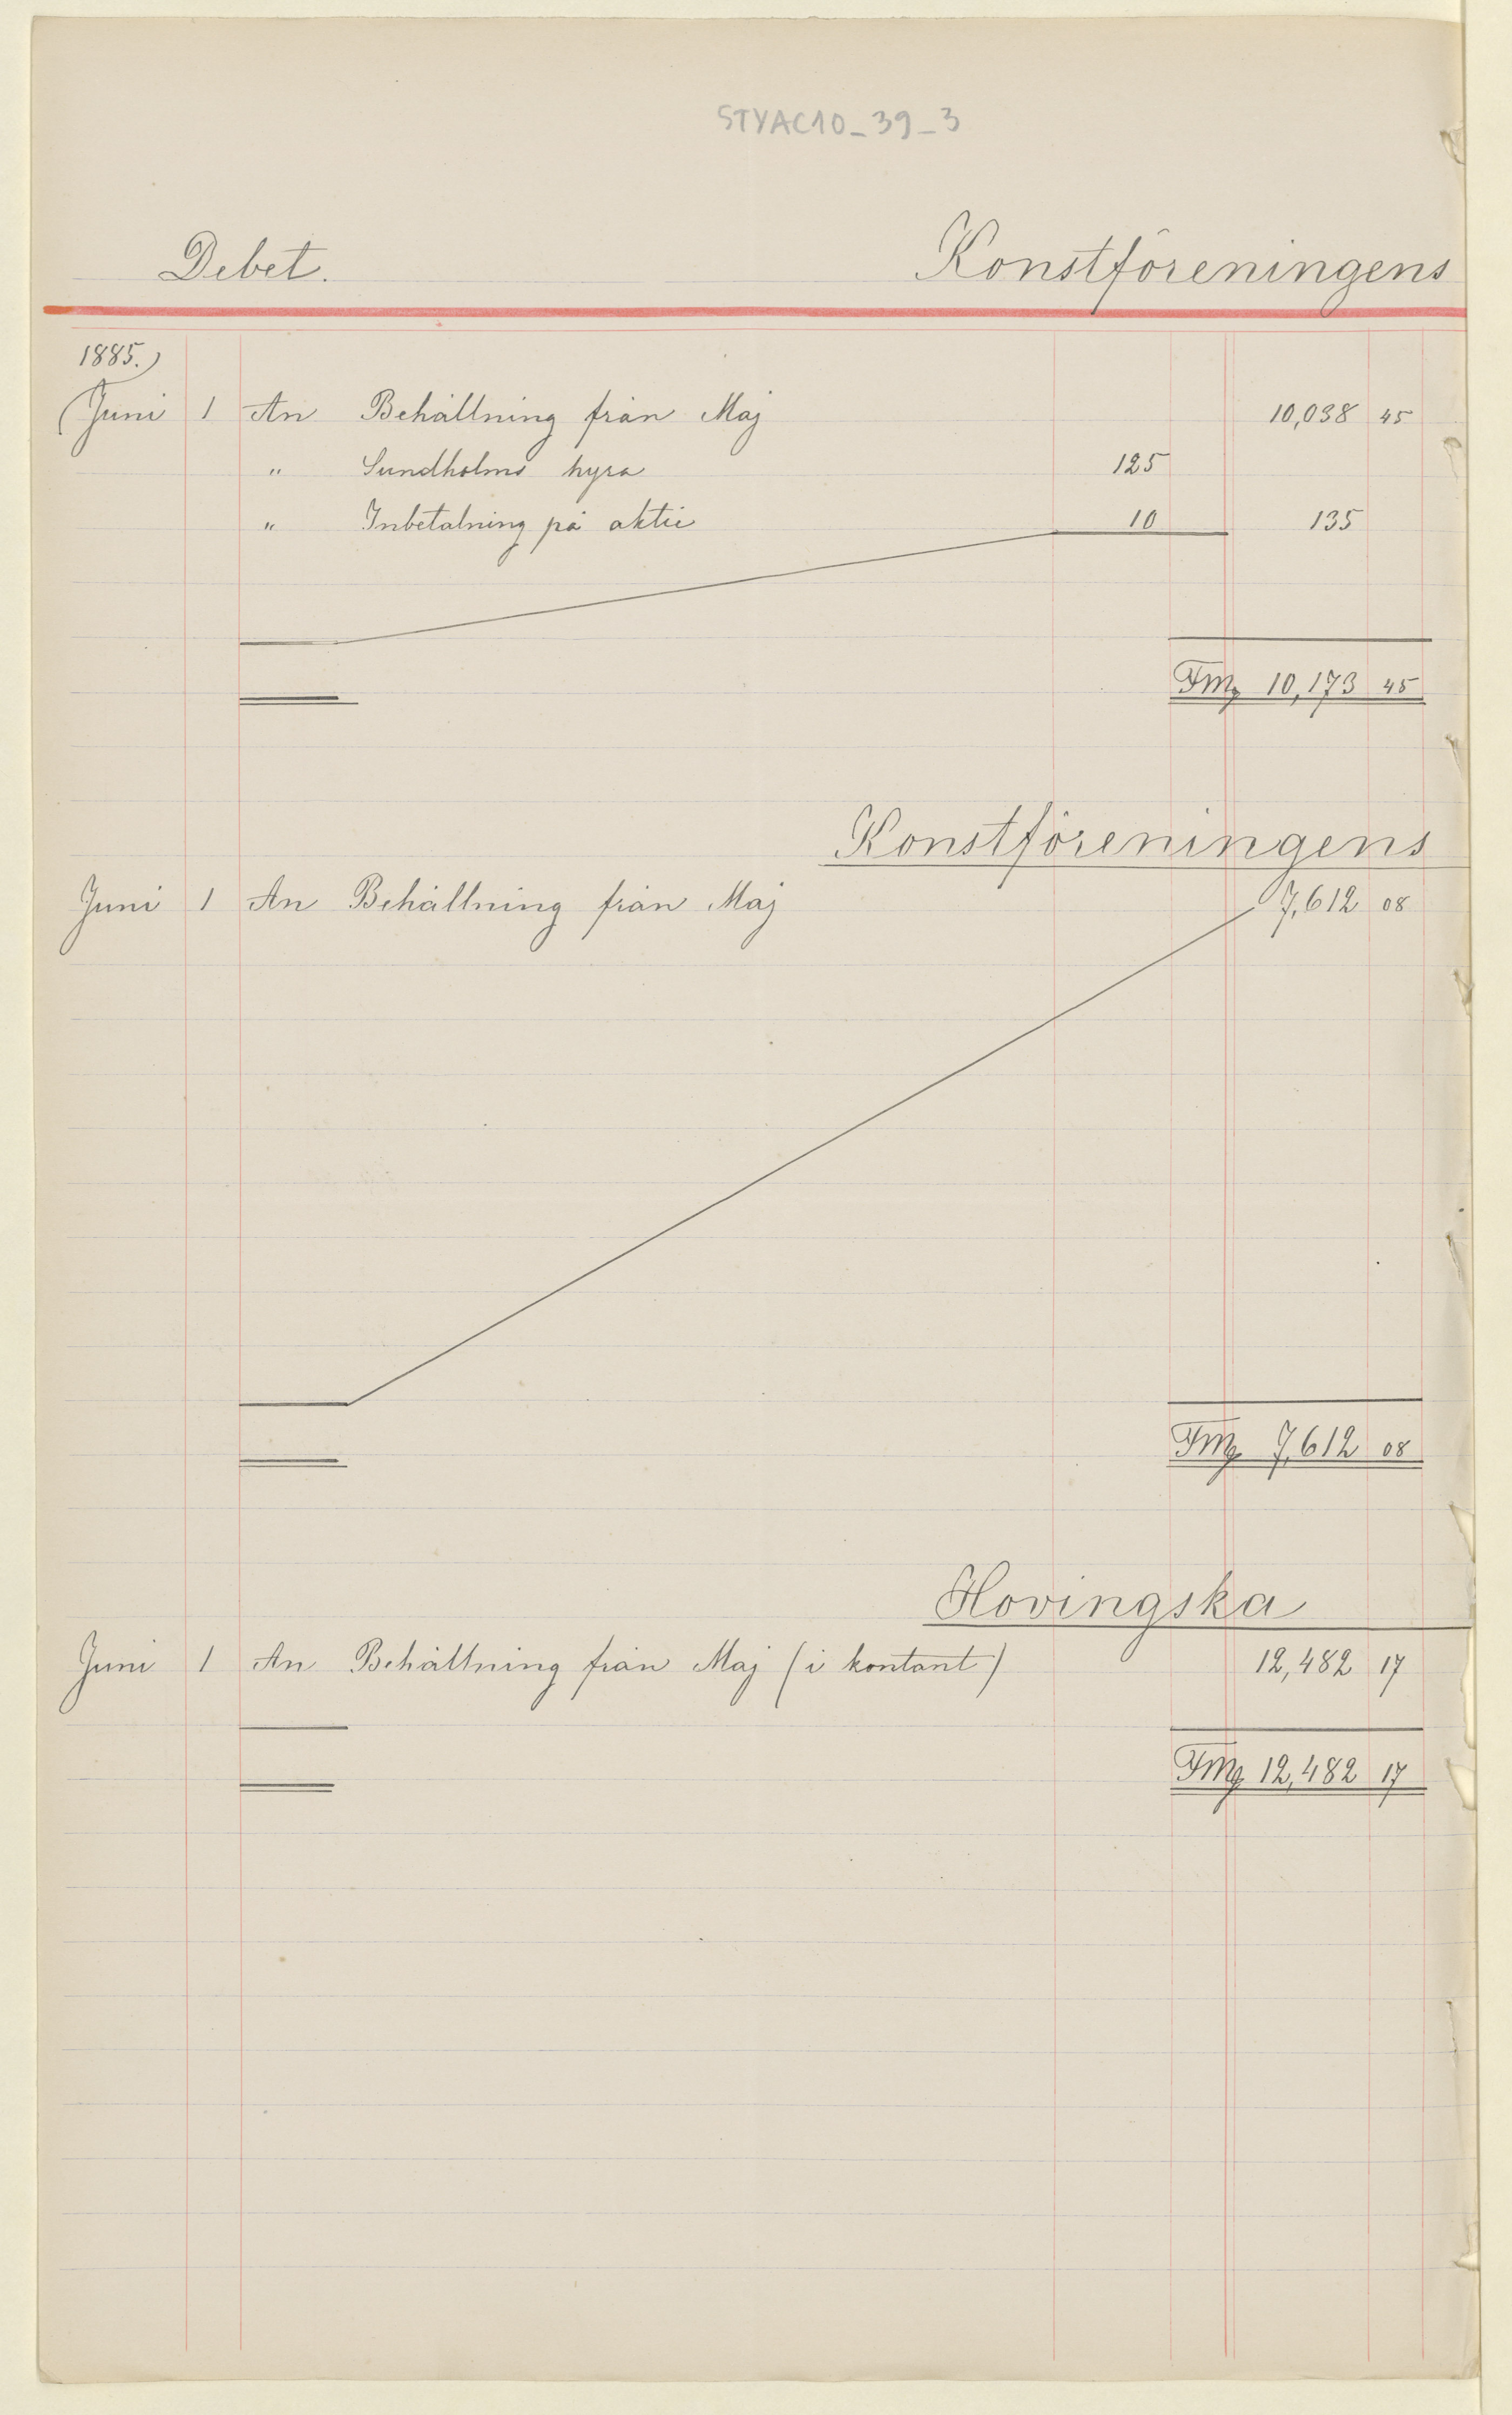 STYAC10_39_3
Debet. Konstföreningens
1885.
Juni 1 An Behållning från Maj 10,038 45
" Sundholms hyra 125
" Inbetalning på aktie 10 135
Fmg 10,173 45
Konstföreningens
Juni 1 An Behållning från Maj 7,612 08
Fmg 7,612 08
Hovingska
Juni 1 An Behållning från Maj (i kontant) 12,482 17
Fmg 12,482 17